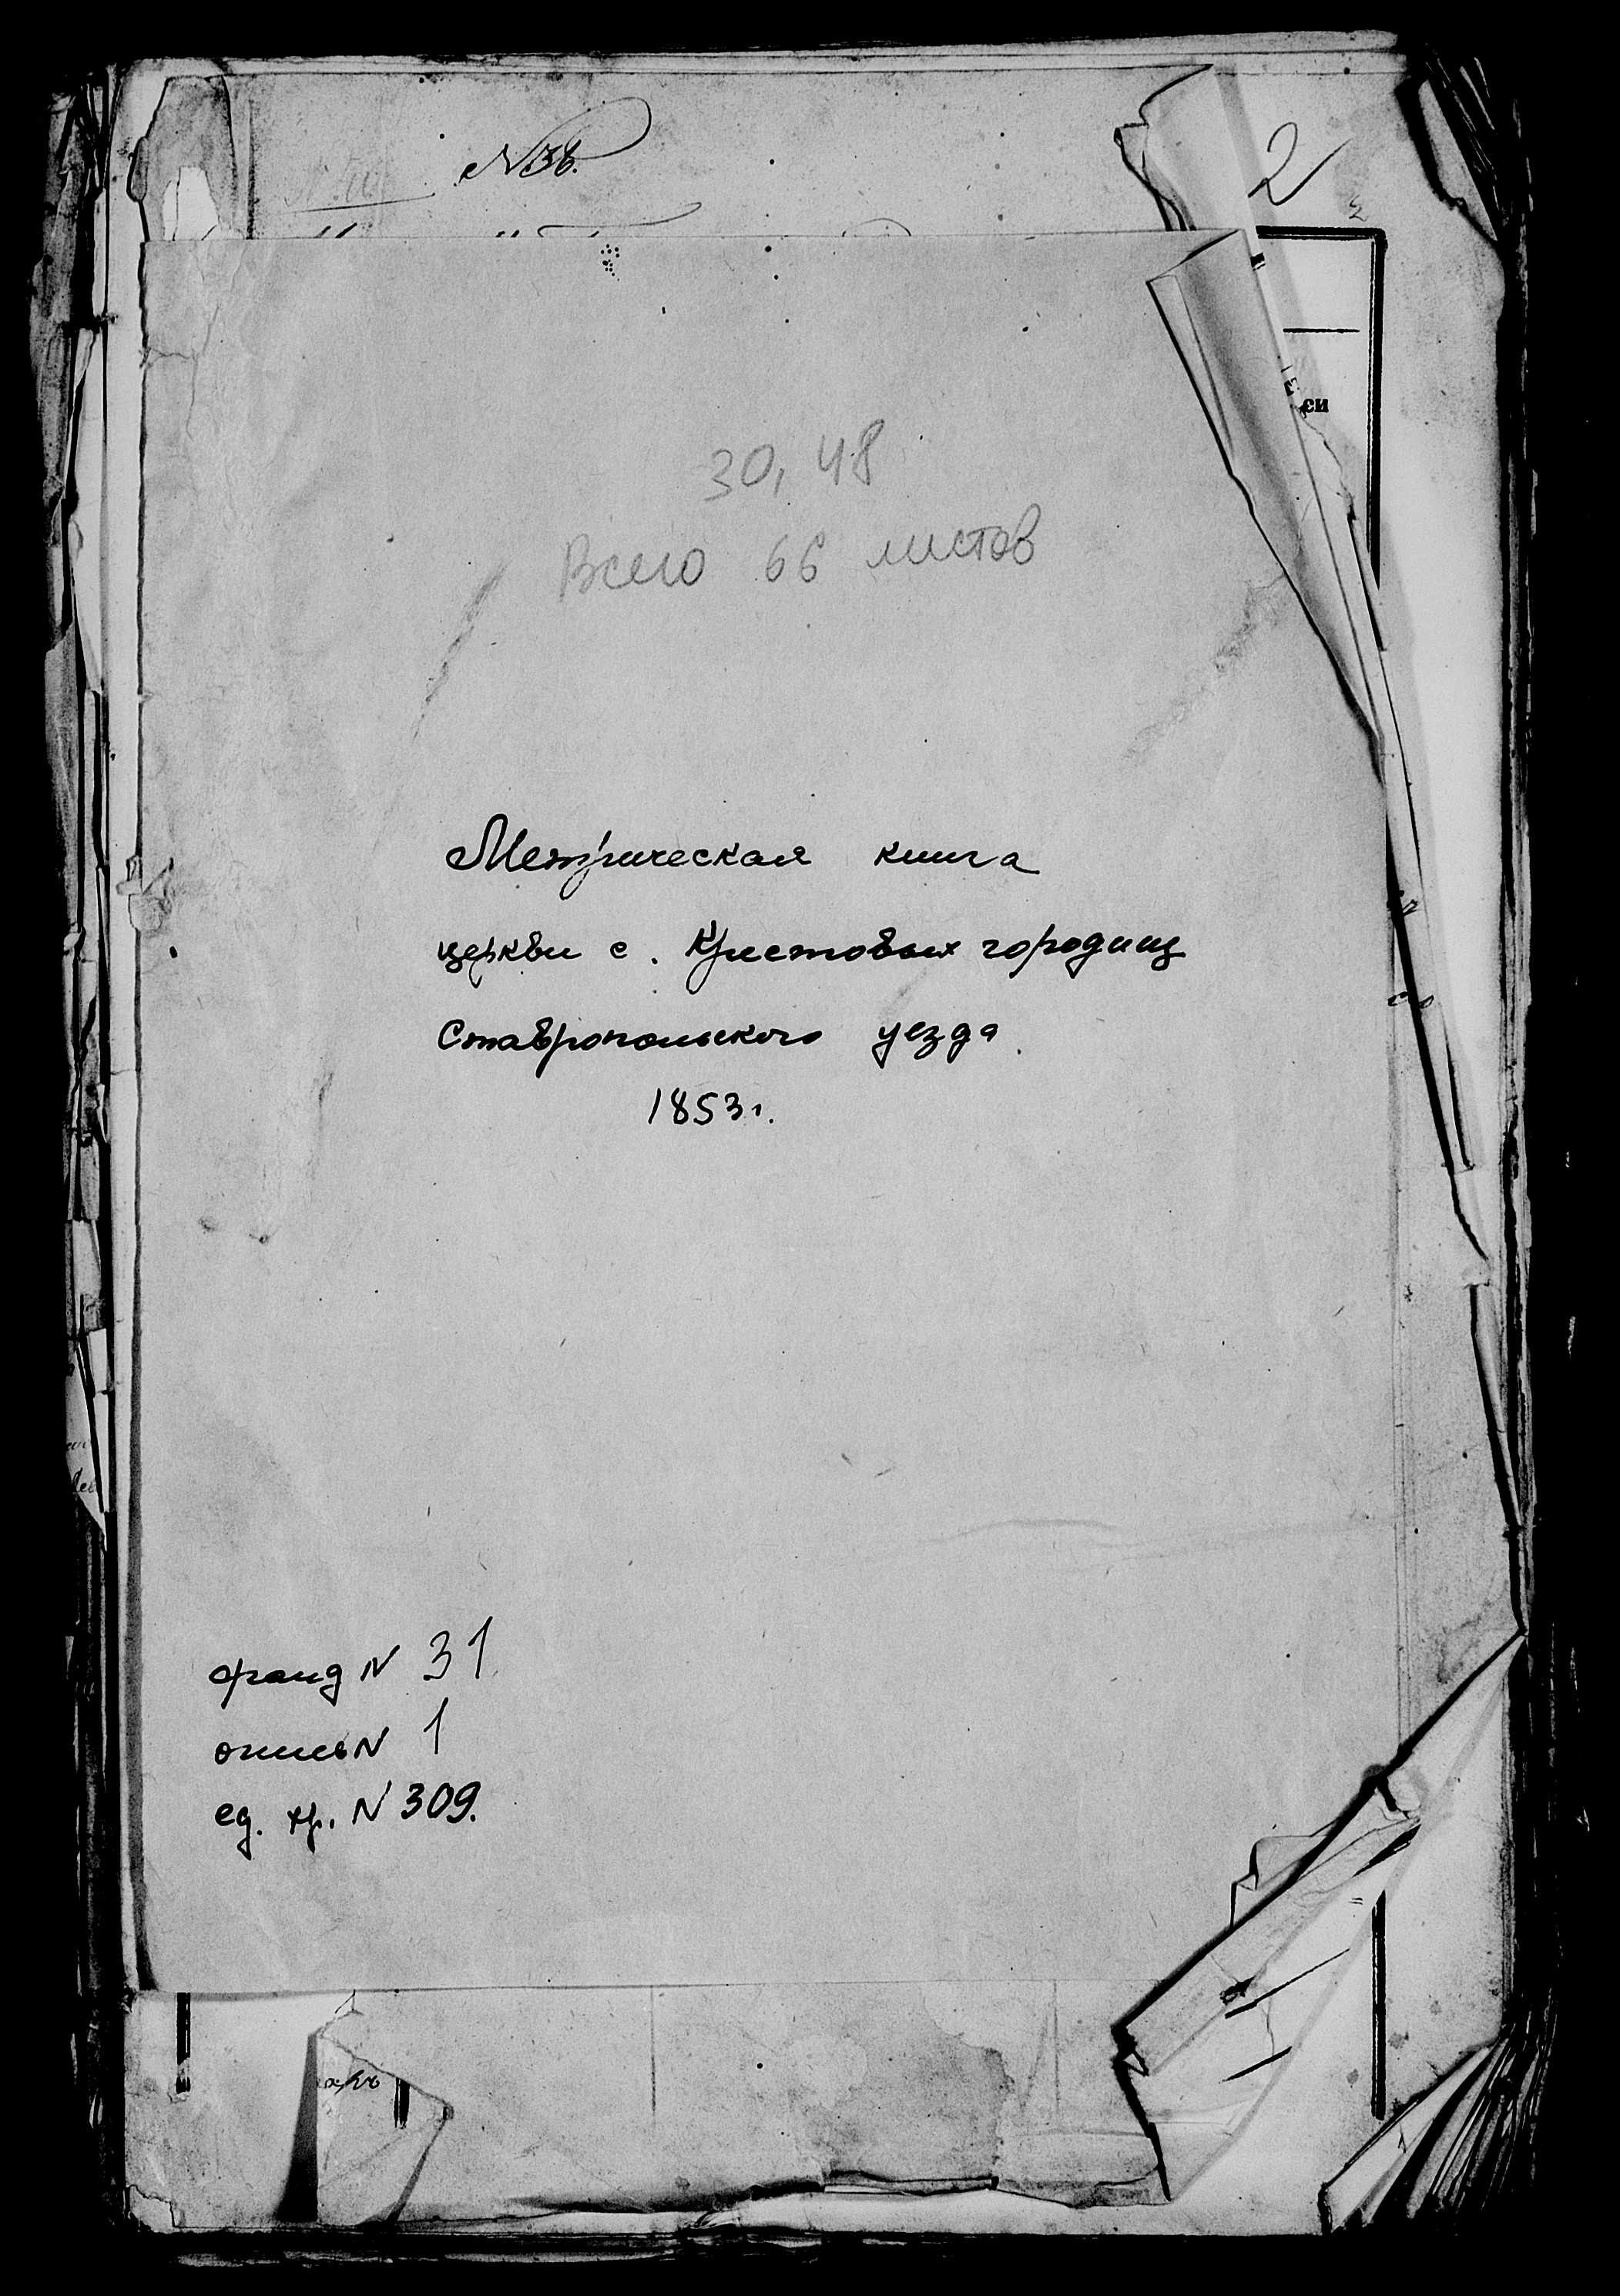 N 38.
2
си
30, 48
Всего 66 листов
Метрическая книга
церкви с. Крестовых городищ
Ставропольского уезда.
1853 г.
фонд N 31
опись N 1
ед. хр. N 309.